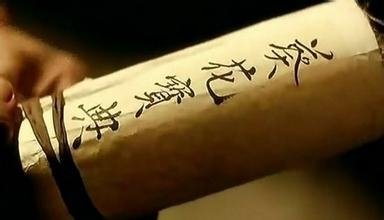 葵花寶典